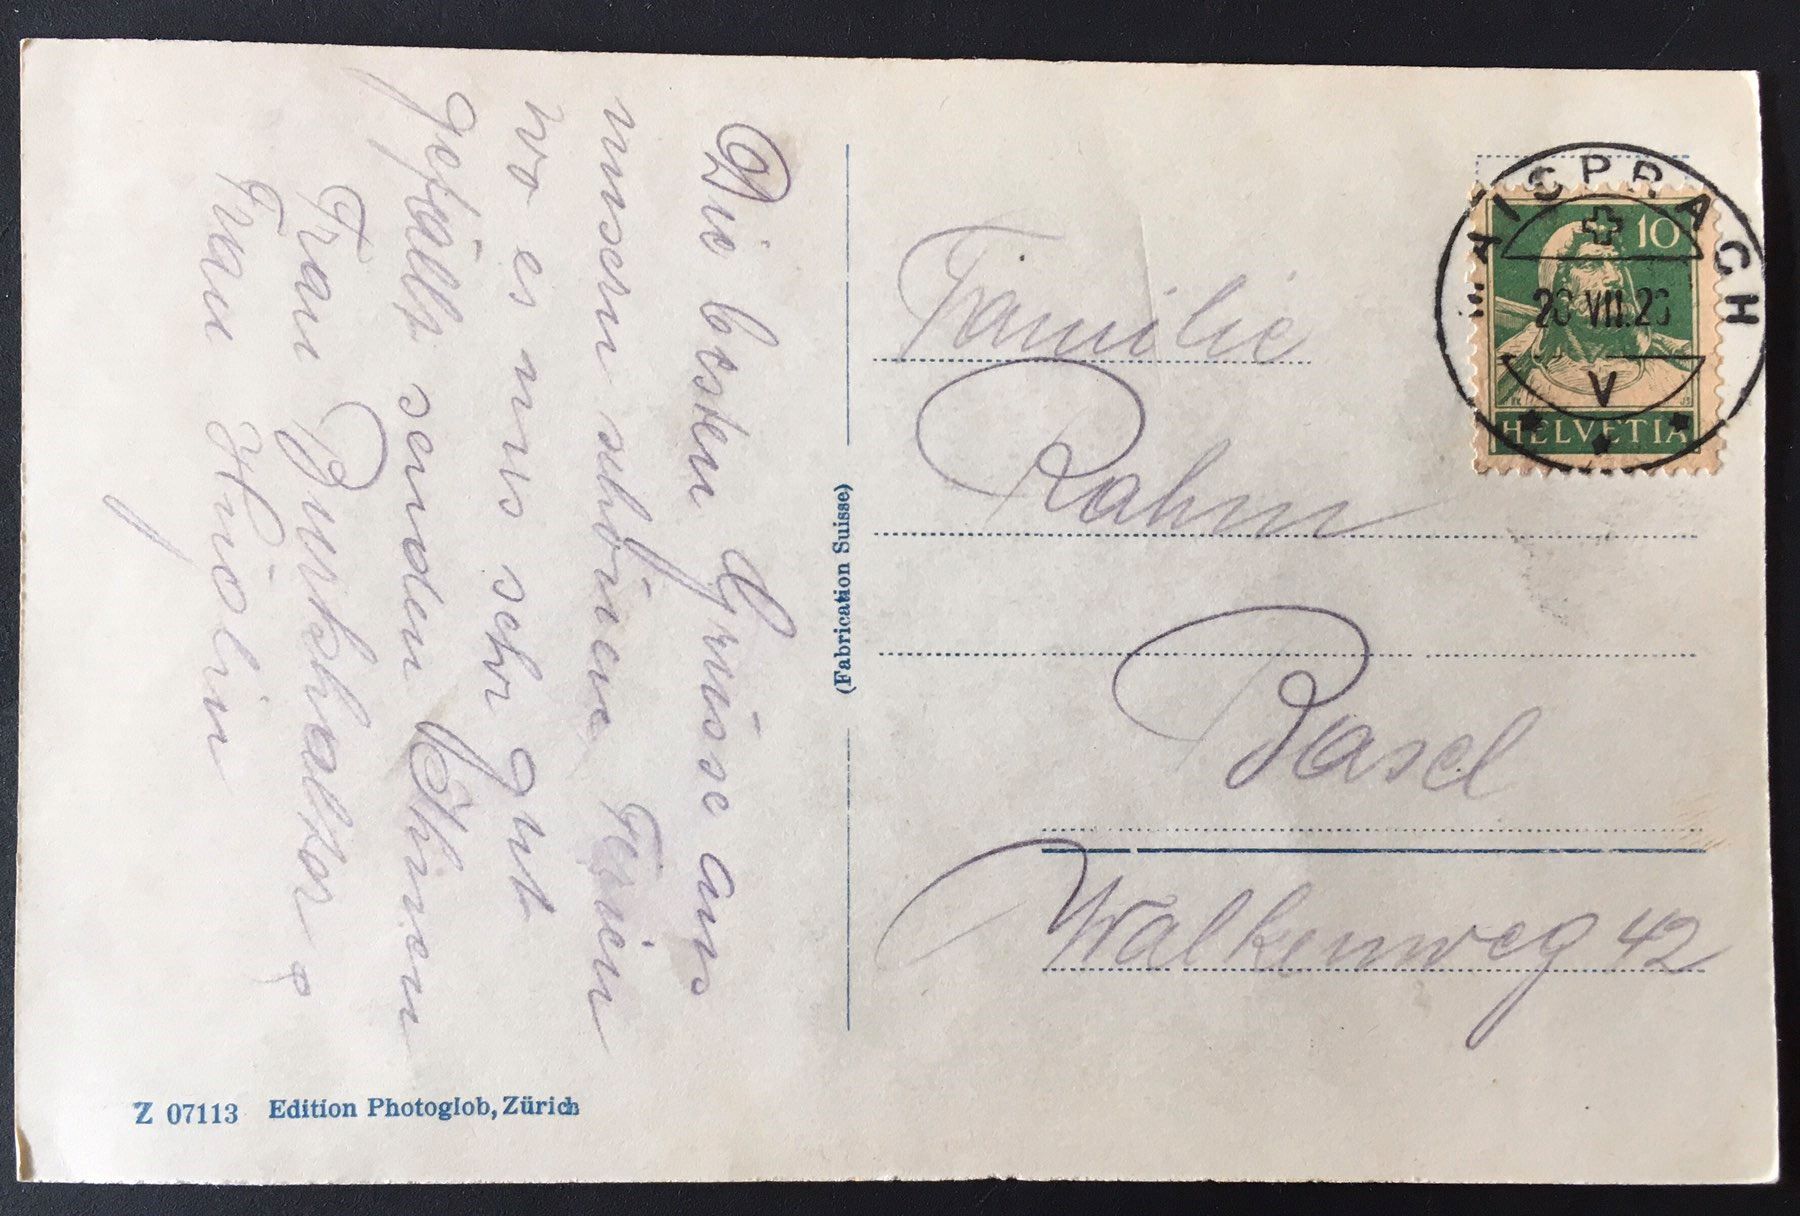 Die besten Grüsse aus
unsern schönen Ferien
wo es uns sehr gut
gefällt senden Ihnen
Frau Burkhalter &
Frau Hüglin
(Fabrication Suisse)
Z 07113 Edition Photoglob, Zürich
MAISPRACH
V
10
HELVETIA
Familie
Rahm
Basel
Walkenweg 42